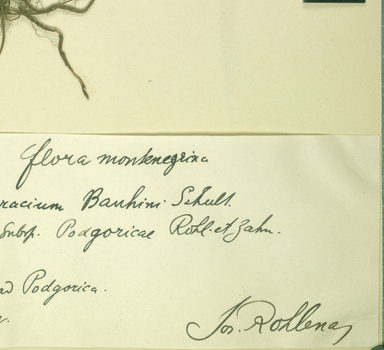 flora montenegrina
racium Bauhini Schult.
Subsp. Podgoricae Rohl. et Zahn.
ad Podgorica.
Jos. Rohlena